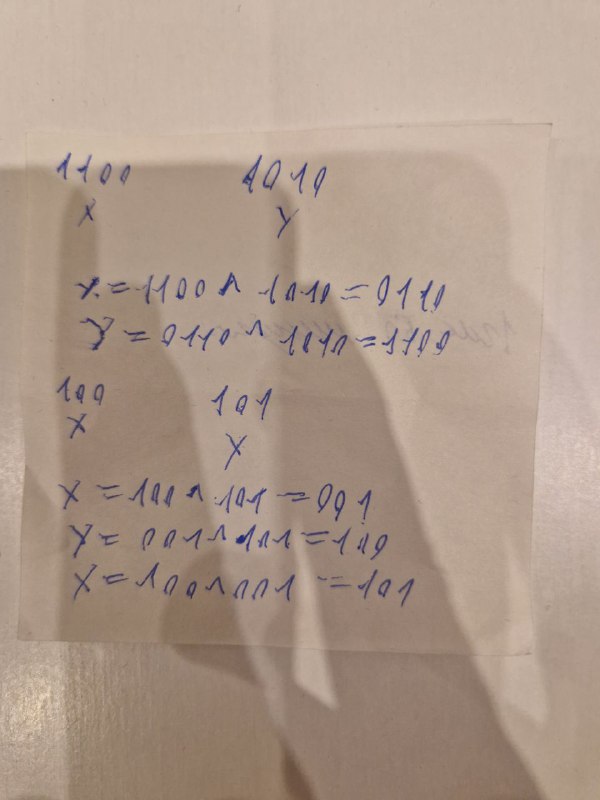 1100 1010
X Y
X = 1100 ^ 1010 = 0110
Y = 0110 ^ 1010 = 1100
100 101
X Y
X = 100 ^ 101 = 001
Y = 001 ^ 101 = 100
X = 100 ^ 001 = 101